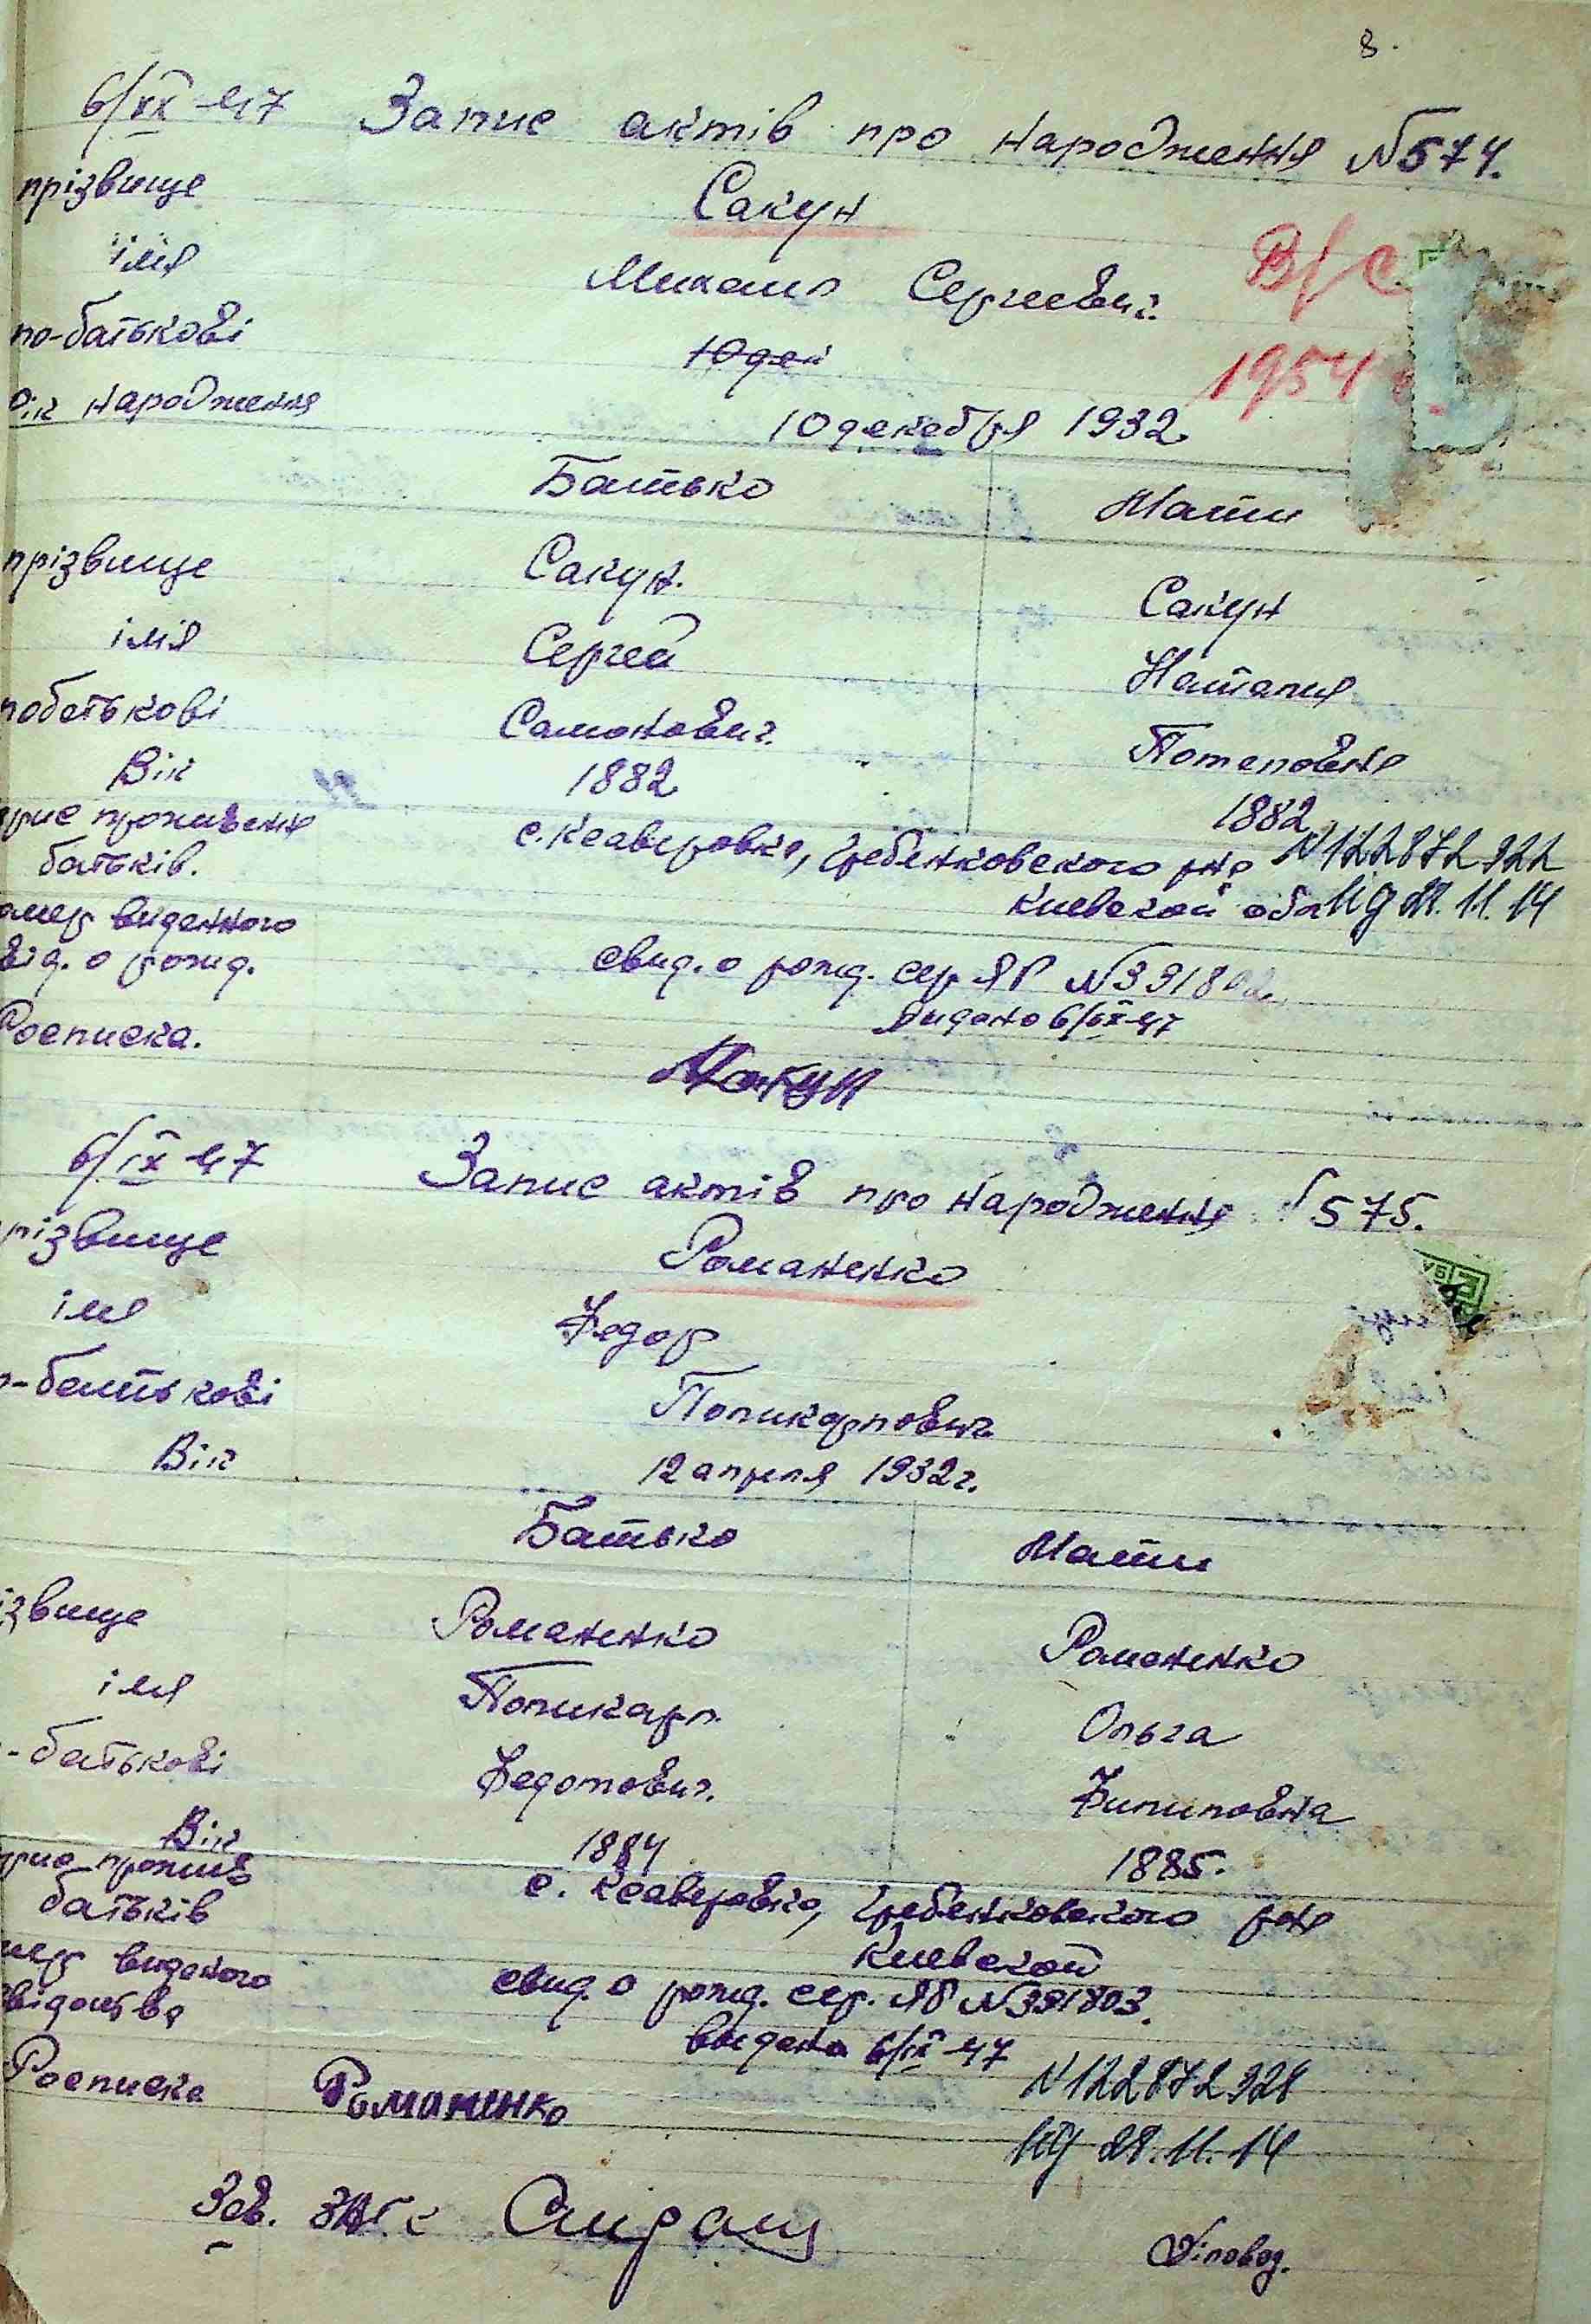 8.
6/IX-47 Запис актів про народження №574.
прізвище Сакун
імя Михаил Сергеевич.
В/С
по-батькові 10 дек
1954
рік народження 10 декабря 1932
Батько Мати
прізвище Сакун. Сакун
імя Сергей Наталия
побатькові Самонович. Потаповна
Вік 1882 1882
проживання с. Ксаверовка, Гребенковского р-на №122872922
батьків. Киевской обл 28.11.14
номер виданного
від. о рожд. свид. о рожд. сер ЯР №391802
видано 6/IX-47
Росписка. Сакун
6/IX-47 Запис актів про народження 575.
прізвище Романенко
імя Федор
по-батькові Поликарпович
Вік 12 апреля 1932 г.
Батько Мати
прізвище Романенко Романенко
імя Поликарп Ольга
по-батькові Федотович. Филиповна
Вік 1884 1885.
прожив с. Ксаверовка, Гребенковского р-на
батьків Киевской
номер виданого свид. о рожд. сер. ЯР №391803.
свідоцтва видано 6/IX-47
Росписка Романенко №122872928
28.11.14
Зав. ЗАГС Діловод.